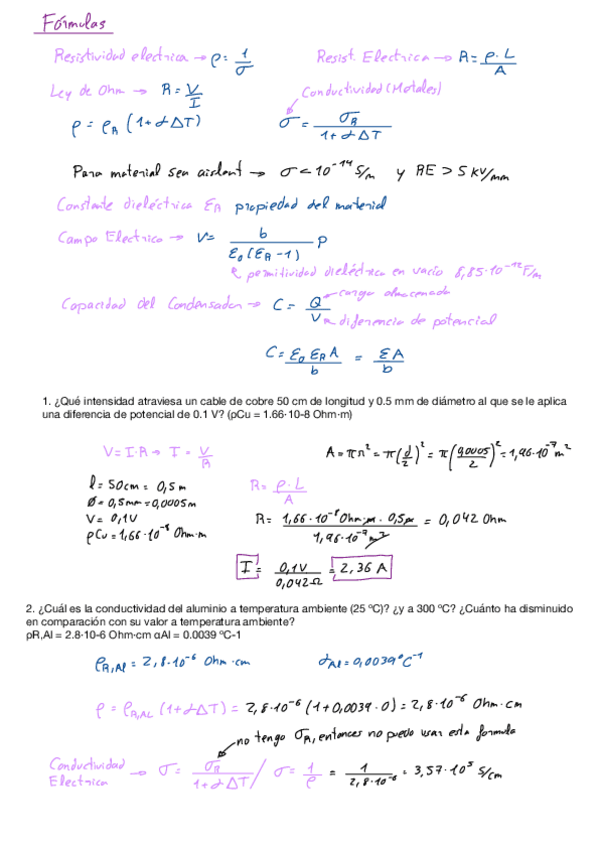 Fórmulas
Resistividad electrica → ρ = 1/σ    Resist. Electrica → R = ρ·L/A
Ley de Ohm → R = V/I    Conductividad (Metales)
ρ = ρR (1+αΔT)    σ = σR/(1+αΔT)
Para material sea aislant → σ < 10^-14 S/m y RE > 5 kV/mm
Constante dieléctrica ER propiedad del material
Campo Electrico → V = b/(E0(ER-1)) P
permitividad dieléctrica en vacío 8,85·10^-12 F/m
Capacidad del Condensador → C = Q/V
carga almacenada
diferencia de potencial
C = E0 ER A/b = EA/b
1. ¿Qué intensidad atraviesa un cable de cobre 50 cm de longitud y 0.5 mm de diámetro al que se le aplica
una diferencia de potencial de 0.1 V? (ρCu = 1.66·10-8 Ohm·m)
V = I·R → I = V/R    A = πr² = π(d/2)² = π(0,0005/2)² = 1,96·10^-7 m²
l = 50cm = 0,5m    R = ρ·L/A
Ø = 0,5mm = 0,0005m
V = 0,1V    R = 1,66·10^-8 Ohm·m · 0,5m / 1,96·10^-7 m² = 0,042 Ohm
ρCu = 1,66·10^-8 Ohm·m
I = 0,1V/0,042Ω = 2,36 A
2. ¿Cuál es la conductividad del aluminio a temperatura ambiente (25 ºC)? ¿y a 300 ºC? ¿Cuánto ha disminuido
en comparación con su valor a temperatura ambiente?
ρR,Al = 2.8·10-6 Ohm·cm αAl = 0.0039 ºC-1
ρR,Al = 2,8·10^-6 Ohm·cm    αAl = 0,0039 ºC^-1
ρ = ρR,AL (1+αΔT) = 2,8·10^-6 (1+0,0039·0) = 2,8·10^-6 Ohm·cm
no tengo σR, entonces no puedo usar esta formula
Conductividad Electrica → σ = σR/(1+αΔT) / σ = 1/ρ = 1/(2,8·10^-6) = 3,57·10^5 S/cm